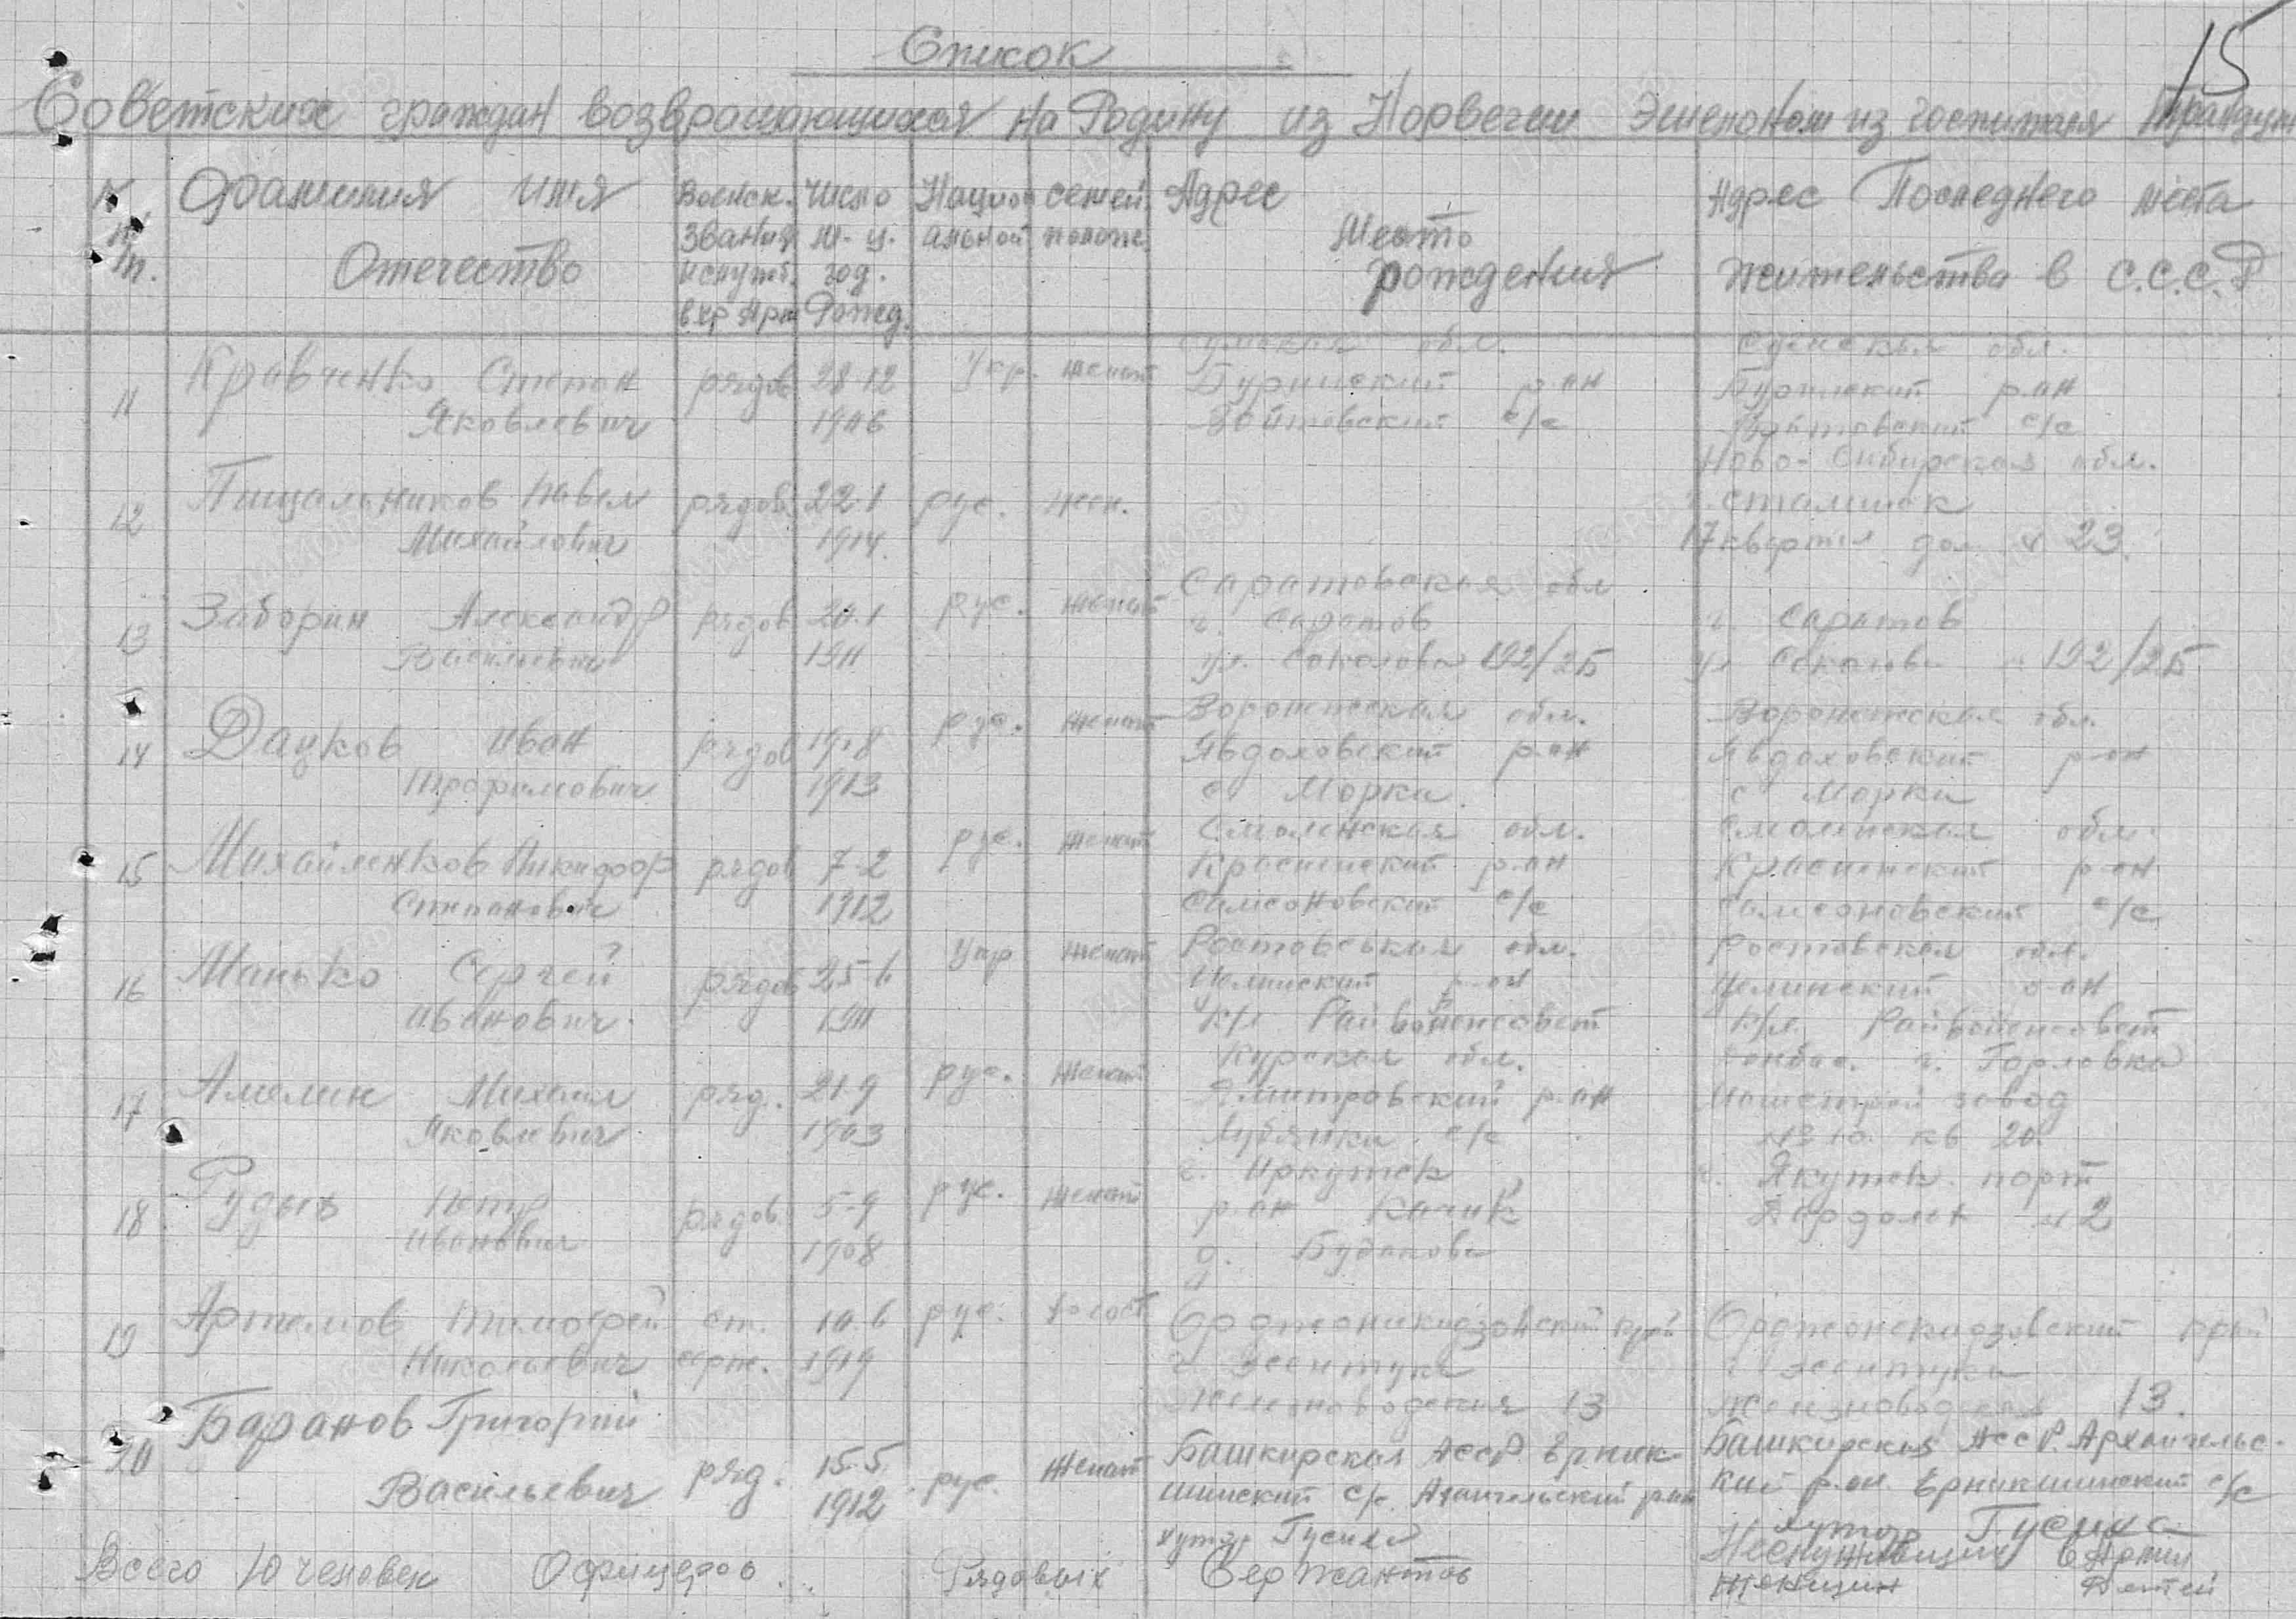 15
Список
Советских граждан возвращающихся на Родину из Норвегии эшелоном из госпиталя Трандум
№ п/п. Фамилия имя Отечество
Воинск. звания и служб. в кр Арм
Число м-ц. год. Рожд.
Национ альной
семей. полож.
Адрес Место рождения
Адрес Последнего места жительства в С.С.С.Р
11 Кравченко Степан рядов 28-12 Укр. женат Сумская обл. Сумская обл.
Яковлевич 1906 Бурынский р-он Бурынский р-он
Войтовский с/с Войтовский с/с
12 Пищальников Павел рядов 22-1 рус. жен. Ново-Сибирская обл.
Михайлович 1914. г. Сталинск
17 квартал дом № 23.
13 Заборин Александр рядов 20.1 рус. женат Саратовская обл
Васильевич 1911 г. Саратов г. Саратов
ул. Соколовая 192/2Б ул Соколова 192/2Б
14 Дацков Иван рядов 19-8 рус. женат Воронежская обл. Воронежская обл.
Трофимович 1913 Явдоховский р-он Явдоховский р-он
с Морки с Морки
15 Михайленков Никифор рядов 7-2 рус. женат Смоленская обл. Смоленская обл.
Степанович 1912 Краснинский р-он Краснинский р-он
Самсоновский с/с Самсоновский с/с
16 Манько Сергей рядов 25-6 Укр женат Ростовская обл. Ростовская обл.
Иванович. 1911 Целинский р-он Целинский р-он
к/х Райвоенсовет к/х. Райвоенсовет
17 Амелин Михаил ряд. 21.9 рус. женат Курская обл. Донбас. г. Горловка
Яковлевич 1903 Дмитровский р-он Машстрой завод
Лубянки с/с № 10. кв 20.
18 Рудых Петр рядов. 5-9 рус. женат г. Иркутск г. Якутск. порт
Иванович 1908 р-он Качик № 2
д. Будакова
19 Артемов Тимофей ст. 10.6 рус. холост Орджоникидзовский край Орджоникидзовский край
Николаевич серж. 1919 г. Эсентуки г. Эсентуки
Железноводская 13 Железноводская 13.
20 Баранов Григорий ряд. 15-5. рус. женат Башкирская АССР. Ерник- Башкирская АССР. Архангельс-
Васильевич 1912 шинский с/с. Архангельский р-он кий р.он. Ерникшинский с/с
хутор Гусиха хутор Гусиха
Всего 10 человек Офицеров.. Рядовых Сержантов Неслуживших в Армии
Женщин Детей